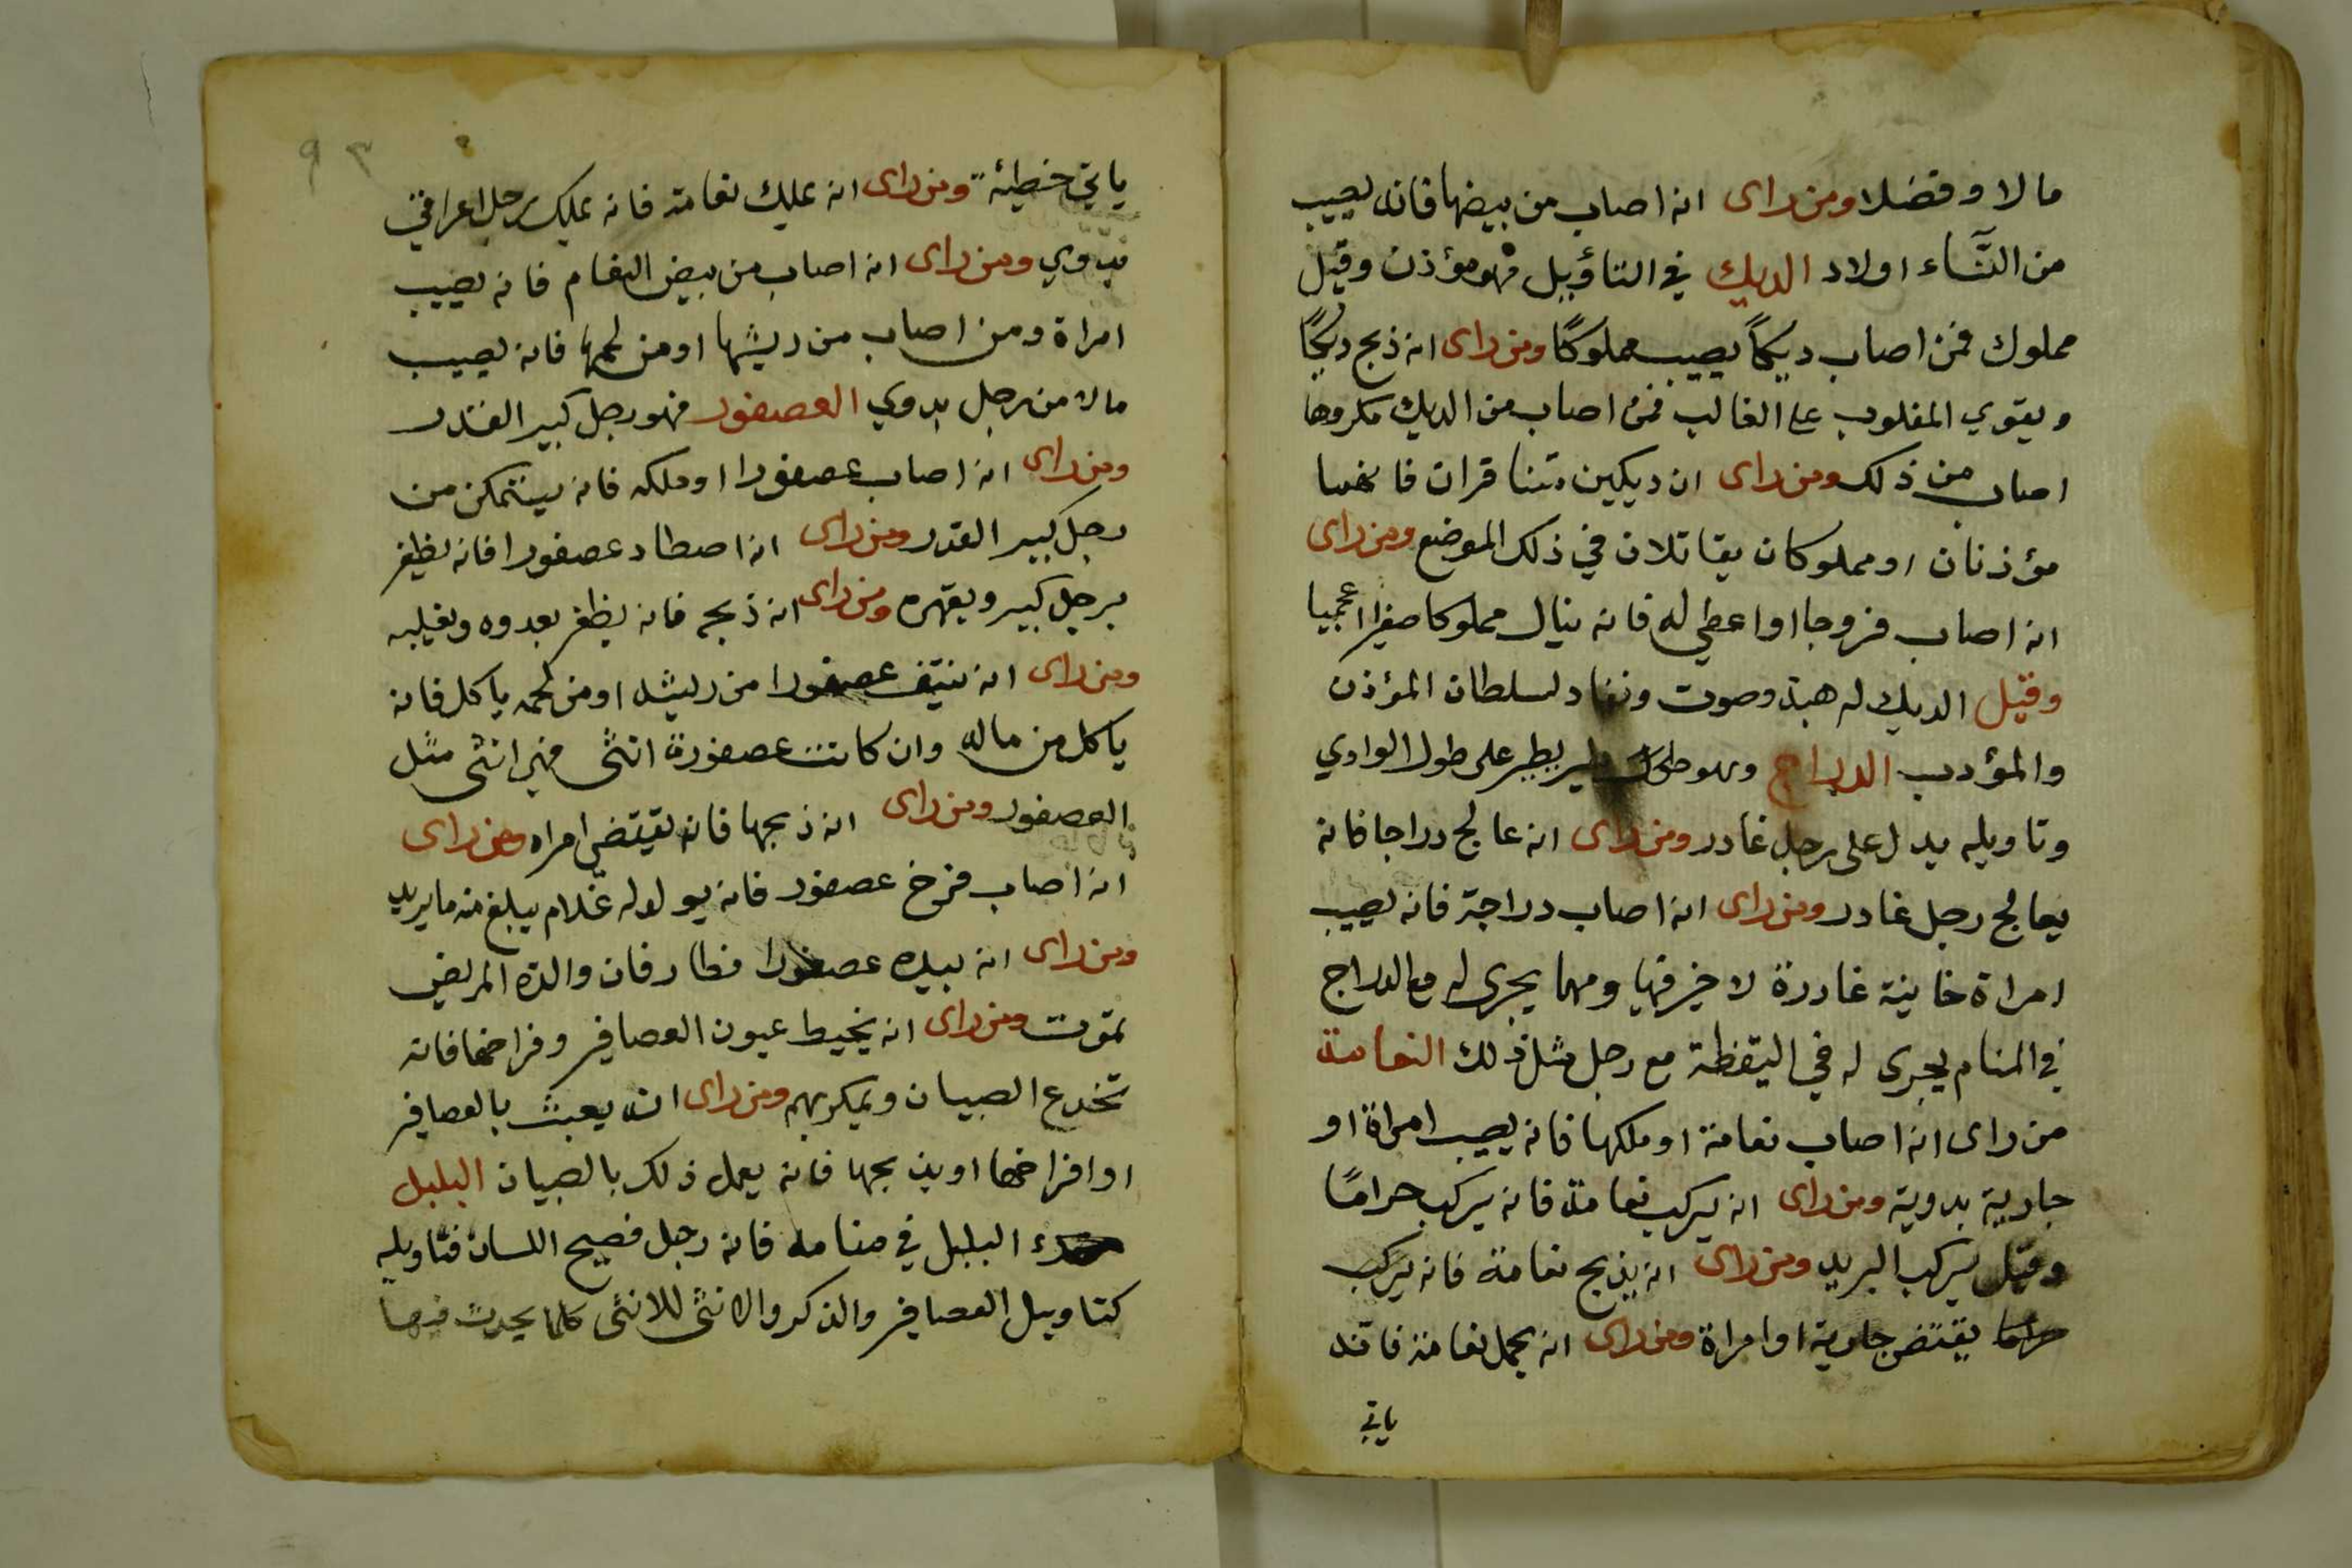 مالا وفضلا ومن راى انه اصاب من بيضها فانه يصيب
من النساء اولاد الديك في التاؤيل فهو مؤذن وقيل
مملوك فمن اصاب ديكاً يصيب مملوكًا ومن راى انه ذبح ديكًا
ويقوي المغلوب على الغالب فمن اصاب من الديك مكروها
اصاب من ذلك ومن راى ان ديكين تتناقران فانهما
مؤذنان او مملوكان يقاتلان في ذلك الموضع ومن راى
انه اصاب فروجا او اعطي له فانه ينال مملوكا صغيرا اعجميا
وقيل الديك له هبة وصوت ونفاد لسلطان المؤذن
والمؤدب الدراج وهو طير يطير على طول الوادي
وتاويله يدل على رجل غادر ومن راى انه عالج دراجا فانه
يعالج رجل غادر ومن راى انه اصاب دراجة فانه يصيب
امراة خاينة غادرة لا خير فيها ومهما يجرى له مع الدراج
في المنام يجرى له في اليقظة مع رجل مثل ذلك النعامة
من راى انه اصاب نعامة او ملكها فانه يصيب امراة او
جارية بدوية ومن راى انه يركب نعامة فانه يركب حرامًا
وقيل يركب البريد ومن راى انه يذبح نعامة فانه يركب
حراما يقتض جارية او امراة ومن راى انه يحمل نعامة فاقند
ياتي
٩٣
ياتي خطيئة ومن راى انه يملك نعامة فانه يملك رجل اعرابي
بدوي ومن راى انه اصاب من بيض النعام فانه يصيب
امراة ومن اصاب من ريشها او من لحمها فانه يصيب
مالا من رجل بدوي العصفور فهو رجل كبير القدر
ومن راى انه اصاب عصفورا او ملكه فانه يتمكن من
رجل كبير القدر ومن راى انه اصطاد عصفورا فانه يظفر
برجل كبير ويقهره ومن راى انه ذبحه فانه يظفر بعدوه ويغلبه
ومن راى انه ينتف عصفورا من ريشه او من لحمه ياكل فانه
ياكل من ماله وان كانت عصفورة انثى فهي انثى مثل
العصفور ومن راى انه ذبحها فانه يقتض امراه ومن راى
انه اصاب فرخ عصفور فانه يولد له غلام يبلغ منه ما يريد
ومن راى انه بيده عصفورا فطار فان والده المريض
تموت ومن راى انه يخيط عيون العصافير وفراخها فانه
تخدع الصبيان ويمكر بهم ومن راى انه يعبث بالعصافير
او افراخها او يذبحها فانه يعمل ذلك بالصبيان البلبل
البلبل في منامه فانه رجل فصيح اللسان فتاويله
كتاويل العصافير والذكر والانثى للانثى كلما يحدث فيها